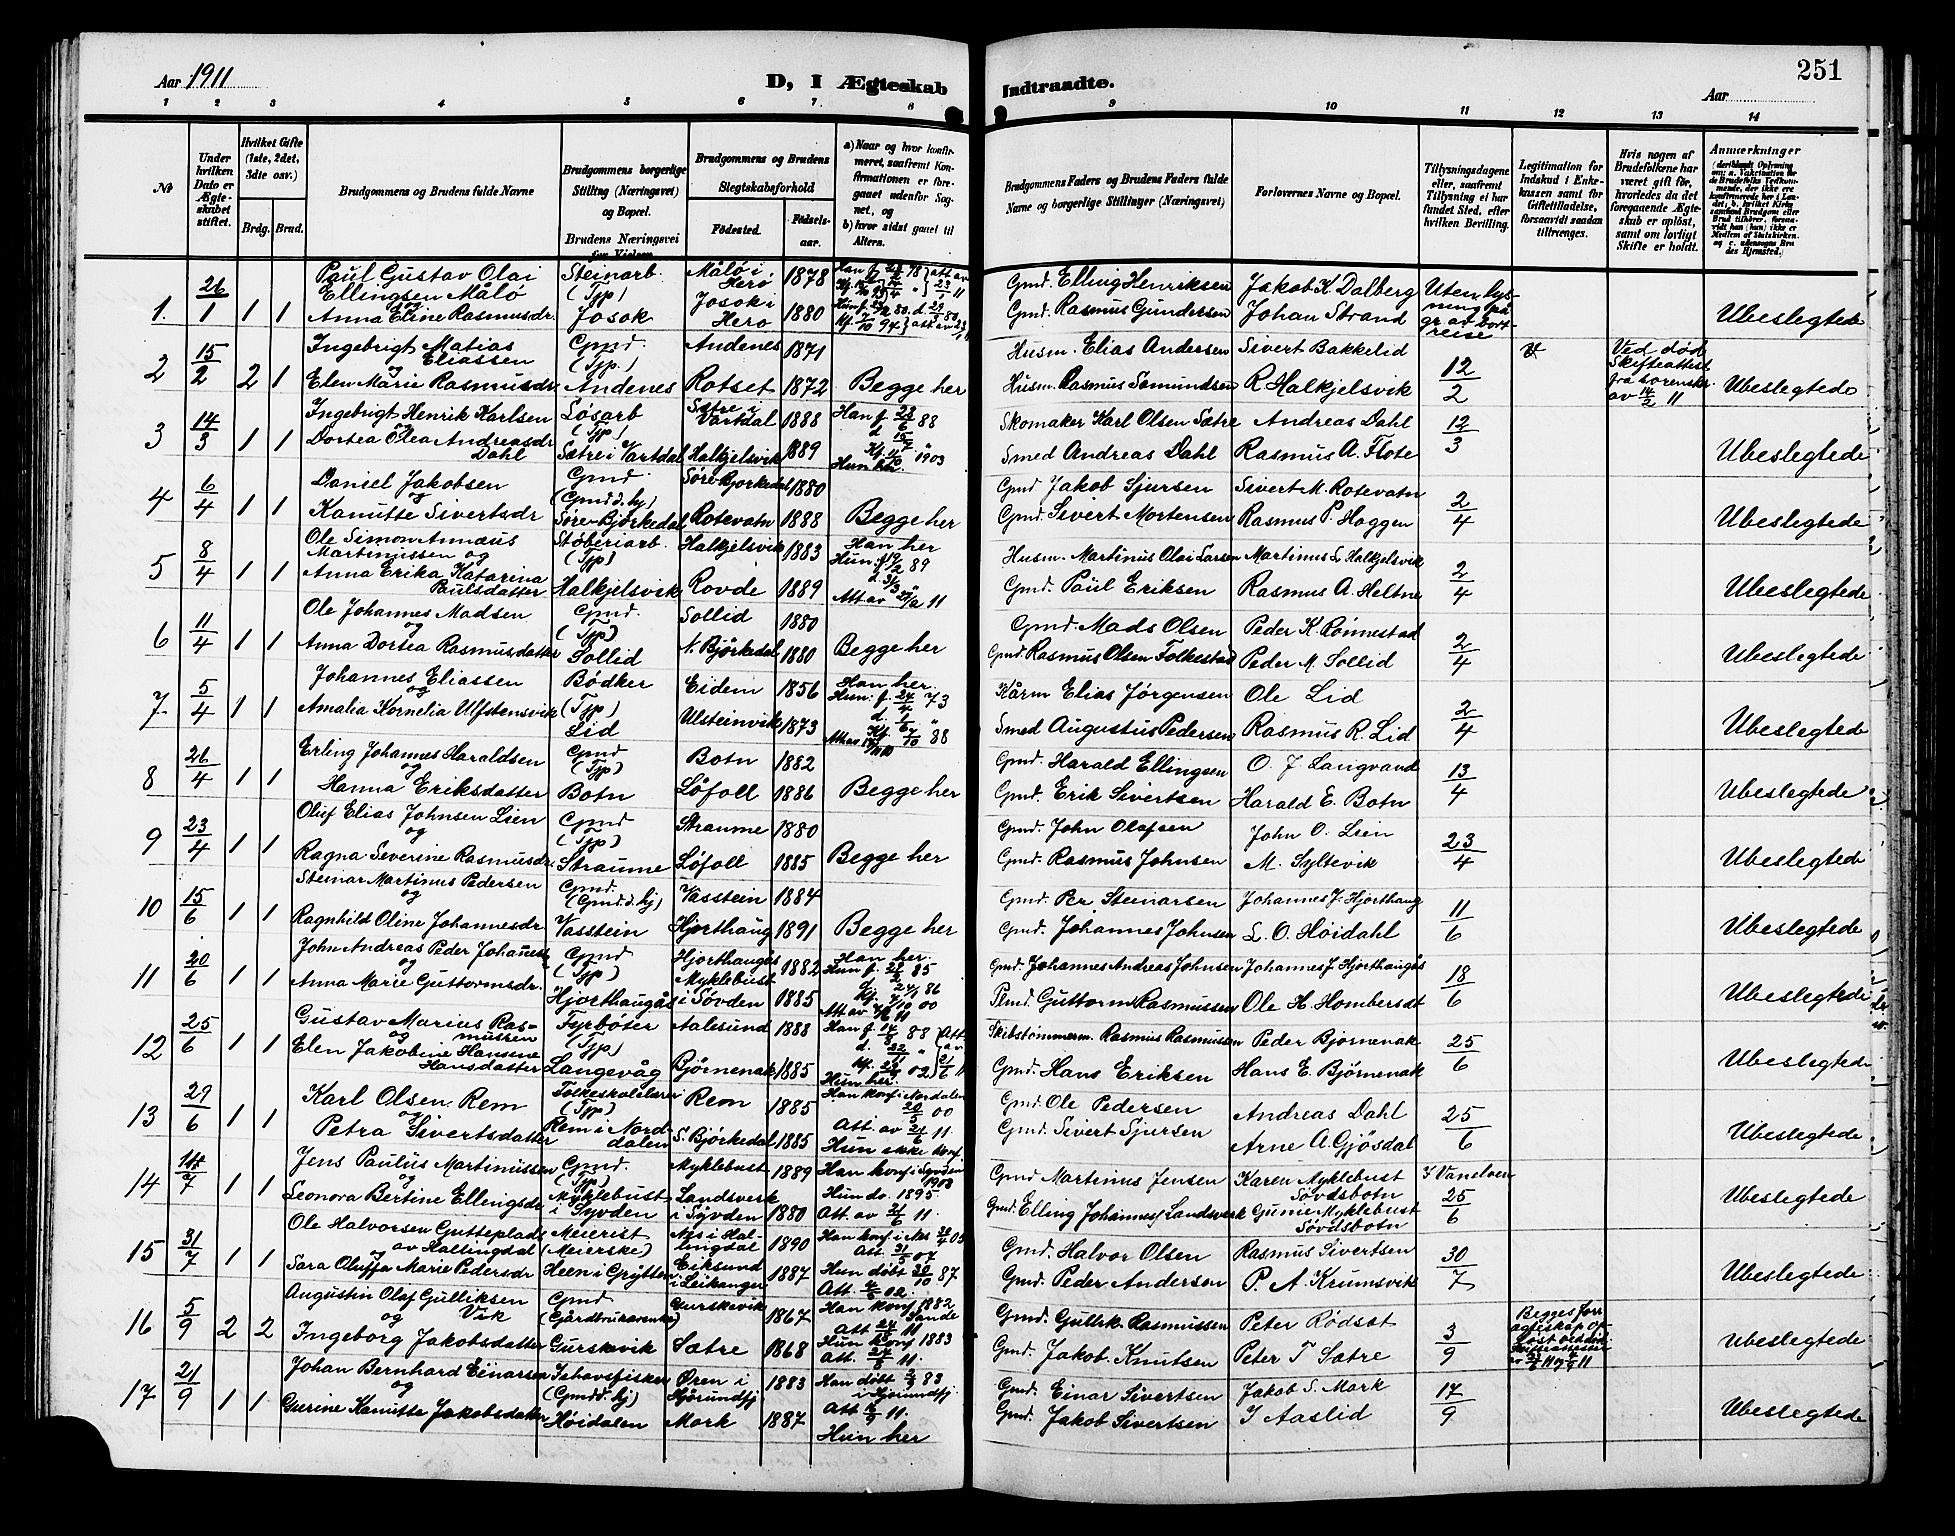 251
Aar 1911
D, I Ægteskab Indtraadte.
Aar
1 2 3 4 5 6 7 8 9 10 11 12 13 14
№
Under hvilken Dato er Ægteskabet stiftet.
Hvilket Gifte (1ste, 2det, 3die osv.)
Brdg. Brud.
Brudgommens og Brudens fulde Navne
Brudgommens borgerlige Stilling (Næringsvei) og Bopæl.
Brudens Næringsvei før Vielsen
Brudgommens og Brudens Slegtskabsforhold
Fødested. Fødselsaar.
a) Naar og hvor konfirmeret, saafremt Konfirmationen er foregaaet udenfor Sognet, og
b) hvor sidst gaaet til Alters.
Brudgommens Faders og Brudens Faders fulde Navne og borgerlige Stillinger (Næringsvei)
Forlovernes Navne og Bopæl.
Tillysningsdagene eller, saafremt Tillysning ei har fundet Sted, efter hvilken Bevilling.
Legitimation for Indskud i Enkekassen samt for Giftetilladelse, forsaavidt saadan tiltrænges.
Hvis nogen af Brudefolkene har været gift før, hvorledes da det foregaaende Ægteskab er opløst, samt om lovligt Skifte er holdt.
Anmærkninger
1. 26/1 1 1 Paul Gustav Olai Ellingsen Målö og Anna Eline Rasmusdr. Steinarb. (Tjp) Josok Målö i Herö 1878 Josok i Herö 1880
Gmd. Elling Henriksen Jakob K. Dalberg Uten lysning på gr. av bortreise
Gmd. Rasmus Gundersen Johan Strand Ubeslegtede
2 15/2 2 1 Ingebrigt Matias Eliassen og Elen Marie Rasmusdr. Gmd. (Tjp) Andenes Andenes 1871 Rotset 1872 Begge her
Husm. Elias Andersen Sivert Bakkelid 12/2 Ved död Skifteattest fra sorenskr. av 14/2 11
Husm. Rasmus Samundsen R Halkjelsvik Ubeslegtede
3 14/3 1 1 Ingebrigt Henrik Karlsen og Dortea Olea Andreasdr. Dahl Løsarb (Tjp) Sætre i Vartdal Sætre i Vartdal 1888 Halkjelsvik 1889 Hun her.
Skomaker Karl Olsen Sætre Andreas Dahl 12/3
Smed Andreas Dahl Rasmus A. Flote Ubeslegtede
4 6/4 1 1 Daniel Jakobsen og Kanutte Sivertsdr Gmd (Gmd.d. hj) Søre-Bjørkedal Søre-Bjorkedal 1880 Rotevatn 1888 Begge her
Gmd Jakob Sjursen Sivert M. Rotevatn 2/4
Gmd. Sivert Mortensen Rasmus P. Haggen Ubeslegtede
5 8/4 1 1 Ole Simon Annæus Martinussen og Anna Erika Katarina Paulsdatter Støberiarb. (Tjp) Halkjelsvik Halkjelsvik 1883 Rovde 1889 Han her
Husm. Martinus Olai Larsen Martinus L. Halkjelsvik 2/4
Gmd. Paul Eriksen Rasmus A. Heltne Ubeslegtede
6 11/4 1 1 Ole Johannes Madsen og Anna Dortea Rasmusdatter Gmd. (Tjp) Sollid Sollid 1880 N. Björkedal 1880 Begge her
Gmd. Mads Olsen Peder K. Rönnestad 2/4
Gmd. Rasmus Olsen Folkestad Peder M. Sollid Ubeslegtede
7 5/4 1 1 Johannes Eliassen og Amalia Kornelia Ulfstensvik Bödker (Tjp) Lid Eidem 1856 Ulsteinvik 1873 Han her.
Kårm Elias Jörgensen Ole Lid 2/4
Smed Augustus Pedersen Rasmus R. Lid Ubeslegtede
8 26/4 1 1 Erling Johannes Haraldsen og Hanna Eriksdatter Gmd (Tjp) Botn Botn 1882 Löfoll 1886 Begge her
Gmd. Harald Ellingsen O. J. Langvand 13/4
Gmd. Erik Sivertsen Harald E. Botn Ubeslegtede
9 23/4 1 1 Oluf Elias Johnsen Lien og Ragna Severine Rasmusdr. Gmd (Tjp) Straume Straume 1880 Löfoll 1885 Begge her
Gmd. John Olafsen John O. Lien 23/4
Gmd. Rasmus Johnsen M. Syltevik Ubeslegtede
10 15/6 1 1 Steinar Martinus Pedersen og Ragnhild Oline Johannesdr. Gmd. (Gmd.d. hj) Vasstein Vasstein 1884 Hjorthaug 1891 Begge her
Gmd. Per Steinarsen Johannes J. Hjorthaug 11/6
Gmd. Johannes Johnsen L. O. Höidahl Ubeslegtede
11 20/6 1 1 John Andreas Peder Johannes. og Anna Marie Guttormsdr. Gmd (Tjp) Hjorthaugås Hjorthaugås 1882 Myklebust i Sövden 1885 Han her.
Gmd. Johannes Andreas Johnsen Johannes J. Hjorthaugås 18/6
Guttorm Rasmussen Ole H. Hombersdt Ubeslegtede
12 25/6 1 1 Gustav Marius Rasmussen og Elen Jakobine Hansine Hansdatter Fyrböter (Tjp) Langevåg Aalesund 1888 Björnenak 1885 Hun her.
Skibstömmerm. Rasmus Rasmussen Peder Björnenak 25/6
Gmd. Hans Eriksen Hans E. Björnenak Ubeslegtede
13 29/6 1 1 Karl Olsen Rem og Petra Sivertsdatter Folkeskolelærer (Tjp) Rem i Norddalen Rem 1885 S. Björkedal 1885 Han konf i Nordalen 20/5 00 Att. av 21/6 11. Hun ikke konf.
Gmd. Ole Pedersen Andreas Dahl 25/6
Gmd. Sivert Sjursen Arne A. Gjösdal Ubeslegtede
14 14/7 1 1 Jens Paulus Martinussen og Leonora Bertine Ellingsdr Gmd. (Tjp) Myklebust i Syvden Myklebust 1889 Landsverk i Syvden 1880 Han konf i Syvden 1903 Hun do. 1895. Att. av 21/6 11.
Gmd Martinus Jensen Karen Myklebust Sövdsbotn I Vanelven 25/6
Gmd. Elling Johannes. Landsverk Gunne Myklebust Sövdsbotn Ubeslegtede
15 31/7 1 1 Ole Halvorsen Gutteplads av Hallingdal og Sara Oluffa Marie Pedersdr Meierist (Meierske) Heen i Grytten Nes i Hallingdal 1890 Eiksund i Leikanger 1887 Hun döbt 30/10 87
Gmd. Halvor Olsen Rasmus Sivertsen 30/7
Gmd. Peder Andersen P. A. Krumsvik Ubeslegtede
16 5/9 2 2 Augustin Olaf Gulliksen Vik og Ingeborg Jakobsdatter Gmd (Gårdbrukerenke) Gurskevik Gurskevik 1867 Sætre 1868 Han konf 1882 Sande Hun konf 1883
Gmd. Gullik Rasmussen Peter Rödset 3/9 Begges forr ægteskap opløst ved död.
Gmd. Jakob Knutsen Peter T Sætre Ubeslegtede
17 21/9 1 1 Johan Bernhard Einarsen og Gurine Kanutte Jakobsdatter Ishavsfisker (Gmdd. hj) Höidalen Ören i Hjörundfj 1883 Mork 1887 Han döbt 83 i Hjörundfj. Hun her
Gmd. Einar Sivertsen Jakob S. Mork 17/9
Gmd. Jakob Sivertsen I Aaslid Ubeslegtede